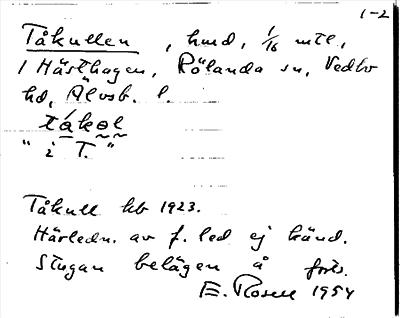 1-2
Tåkullen, hmd, 1/16 mtl,
i Hästhagen, Rölanda sn, Vedbo
hd, Älvsb. l.
tákəl
" i T. "
Tåkull kb 1923.
Härledn. av f. led ej känd.
Stugan belägen å fors.
E. Rosell 1954